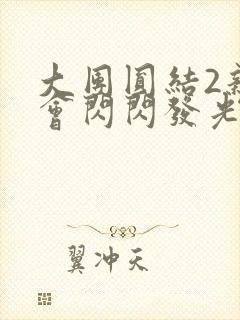 大團圓結2新
會閃閃發光
翼冲天